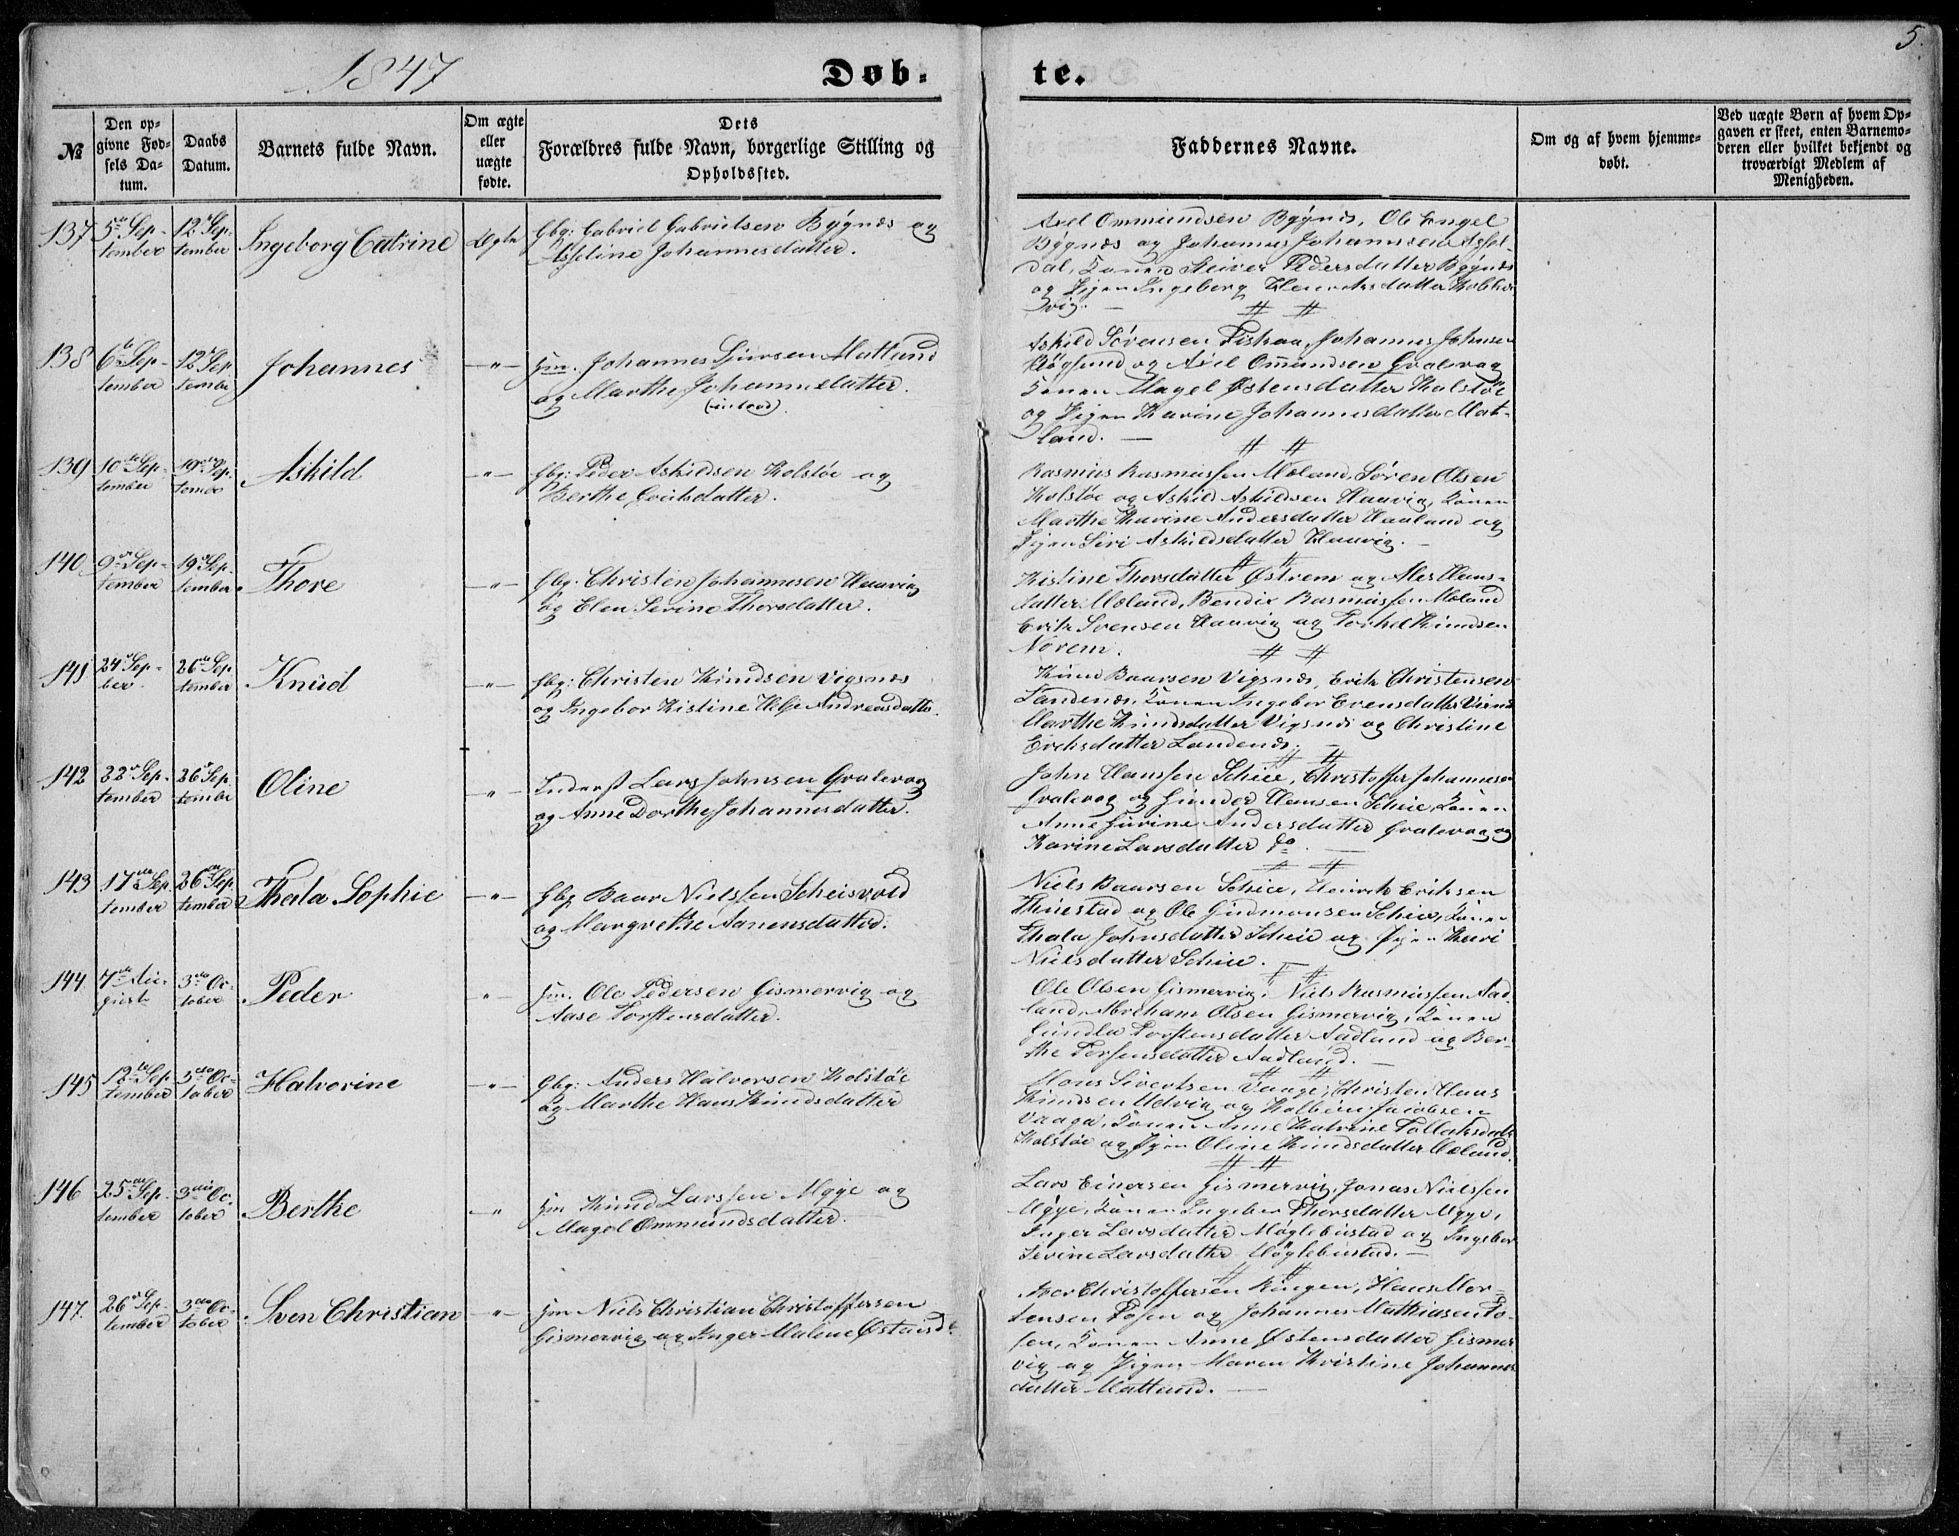 1847
Døb-
te.
5.
№
Den op-
givne Fød-
sels Da-
tum.
Daabs
Datum.
Barnets fulde Navn.
Om ægte
eller
uægte
fødte.
Dets
Forældres fulde Navn, borgerlige Stilling og
Opholdssted.
Faddernes Navne.
Om og af hvem hjemme-
døbt.
Ved uægte Børn af hvem Op-
gaven er skeet, enten Barnemo-
deren eller hvilket bekjendt og
troværdigt Medlem af
Menigheden.
137
5te Sep-
tember
12te Sep-
tember
Ingeborg Catrine
Ægte
Gbg: Gabriel Gabrielsen Bøgnæs og
Asseline Johannesdatter.
Axel Ommundsen Bygnæs, Ole Engel
Bøgnæs og Johannes Johannesen
dal, Konen Pedersdatter Bygnæs
og Pigen Ingeborg Henriksdatter
vig.
138
6te Sep-
tember
12te Sep-
tember
Johannes
-"-
Hm. Johannes Sjursen Matland
og Marthe Johannesdatter.
Askild Sørensen Fiskaa, Johannes Johnsen
Høglund og Axel Ommundsen Qvalevog
Konen Magel Østensdatter Kolstøe
og Pigen Karine Johannesdatter Mat-
land.
139
10de Sep-
tember
19de Sep-
tember
Askild
-"-
Gbg: Peder Askildsen Kolstøe og
Berthe Eriksdatter.
Rasmus Rasmussen Mæland, Søren Olsen
Kolstøe og Askild Askildsen Haavig, Konen
Marthe Karine Andersdatter Haaland og
Pigen Siri Askildsdatter Haavig.
140
9de Sep-
tember
19de Sep-
tember
Thore
-"-
Gbg. Christen Johannesen Haavig
og Elen Serine Thorsdatter.
Kistine Thorsdatter Østrem og Ales Hans-
datter Mæland, Bendix Rasmussen Mæland
Erik Svensen Haavig og Torkel Knudsen
Norem.
141
24de Sep-
ber
26de Sep-
tember
Knud
-"-
Gbg: Christen Knudsen Vigsnæs
og Ingebor Kistine Andreasdatter.
Knud Baarsen Vigsnæs, Erik Christensen
Landenæs, Konen Ingebor Evensdatter
Marthe Knudsdatter Vigsnæs og Christine
Eriksdatter Landenæs.
142
22de Sep-
tember
26de Sep-
tember
Oline
"
Inderst Lars Johnsen Qvalevog
og Anne Dorthe Johannesdatter.
John Hanssen Scheie, Christoffer Johannesen
Qvalevog og Gunder Hansen Scheie, Konen
Anne Gurine Andersdatter Qvalevog og
Karine Larsdatter do.
143
17de Sep-
tember
26de Sep-
tember
Thala Sophie
-"-
Gbg Baar Nielssen Scheisvold
og Margrethe Aanensdatter.
Niels Baarsen Scheie, Henrik Eriksen
Thuestad og Ole Gudmonsen Scheie, Konen
Thala Johnsdatter Scheie og Pigen Kari
Nielsdatter Scheie.
144
7de Au-
gust
3die Oc-
tober
Peder
"
Hm. Ole Pedersen Gismervig og
Aase Torstensdatter.
Ole Olsen Gismervig, Niels Rasmussen Aad-
land, Abraham Olsen Gismervig, Konen
Gundla Torstensdatter Aadland og Ber-
the Torstensdatter Aadland.
145
12te Sep-
tember
3die Oc-
tober
Halvorine
-"-
Gbg: Anders Halvorsen Kolstøe
og Marthe Hans Knudsdatter
Mons Sivertsen Vaage, Christen Hans
Knudsen Udvig og Kolbein Jacobsen
Vaage, Konen Anne Katrine Tollaksdatter
Kolstøe og Pigen Oline Knudsdatter Mæland.
146
25de Sep-
tember
3die Oc-
tober
Berthe
"
Hm Knud Larssen Mgye og
Magel Ommundsdatter.
Lars Einersen Gismervig, Jonas Nielssen
Mgye, Konen Ingebor Thorsdatter Mgye,
Inger Larsdatter Møglebustad og Ingebor
Serine Larsdatter Møglebustad.
147.
26de Sep-
tember
3die Oc-
tober
Sven Christian
-"-
Hm Niels Christian Christoffersen
Gismervig og Inger Malene Østensdt.
Christoffersen Ringen, Hans Mor-
tensen Fosen og Johannes Mathiasen Fo-
sen, Konen Anne Østensdatter Gismer-
vig og Pigen Maren Kristine Johannes
datter Matland.